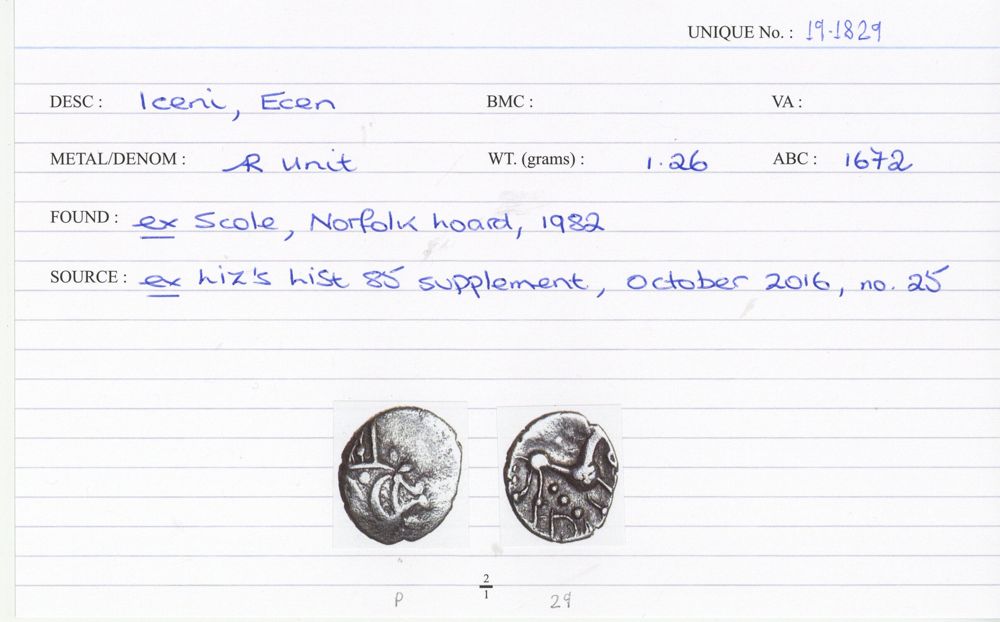 UNIQUE No. : 19-1829
DESC : Iceni, Ecen BMC : VA :
METAL/DENOM : AR Unit WT. (grams) : 1.26 ABC : 1672
FOUND : ex Scole, Norfolk hoard, 1982
SOURCE : ex Liz's List 85 supplement, October 2016, no. 25
2
1
P 29